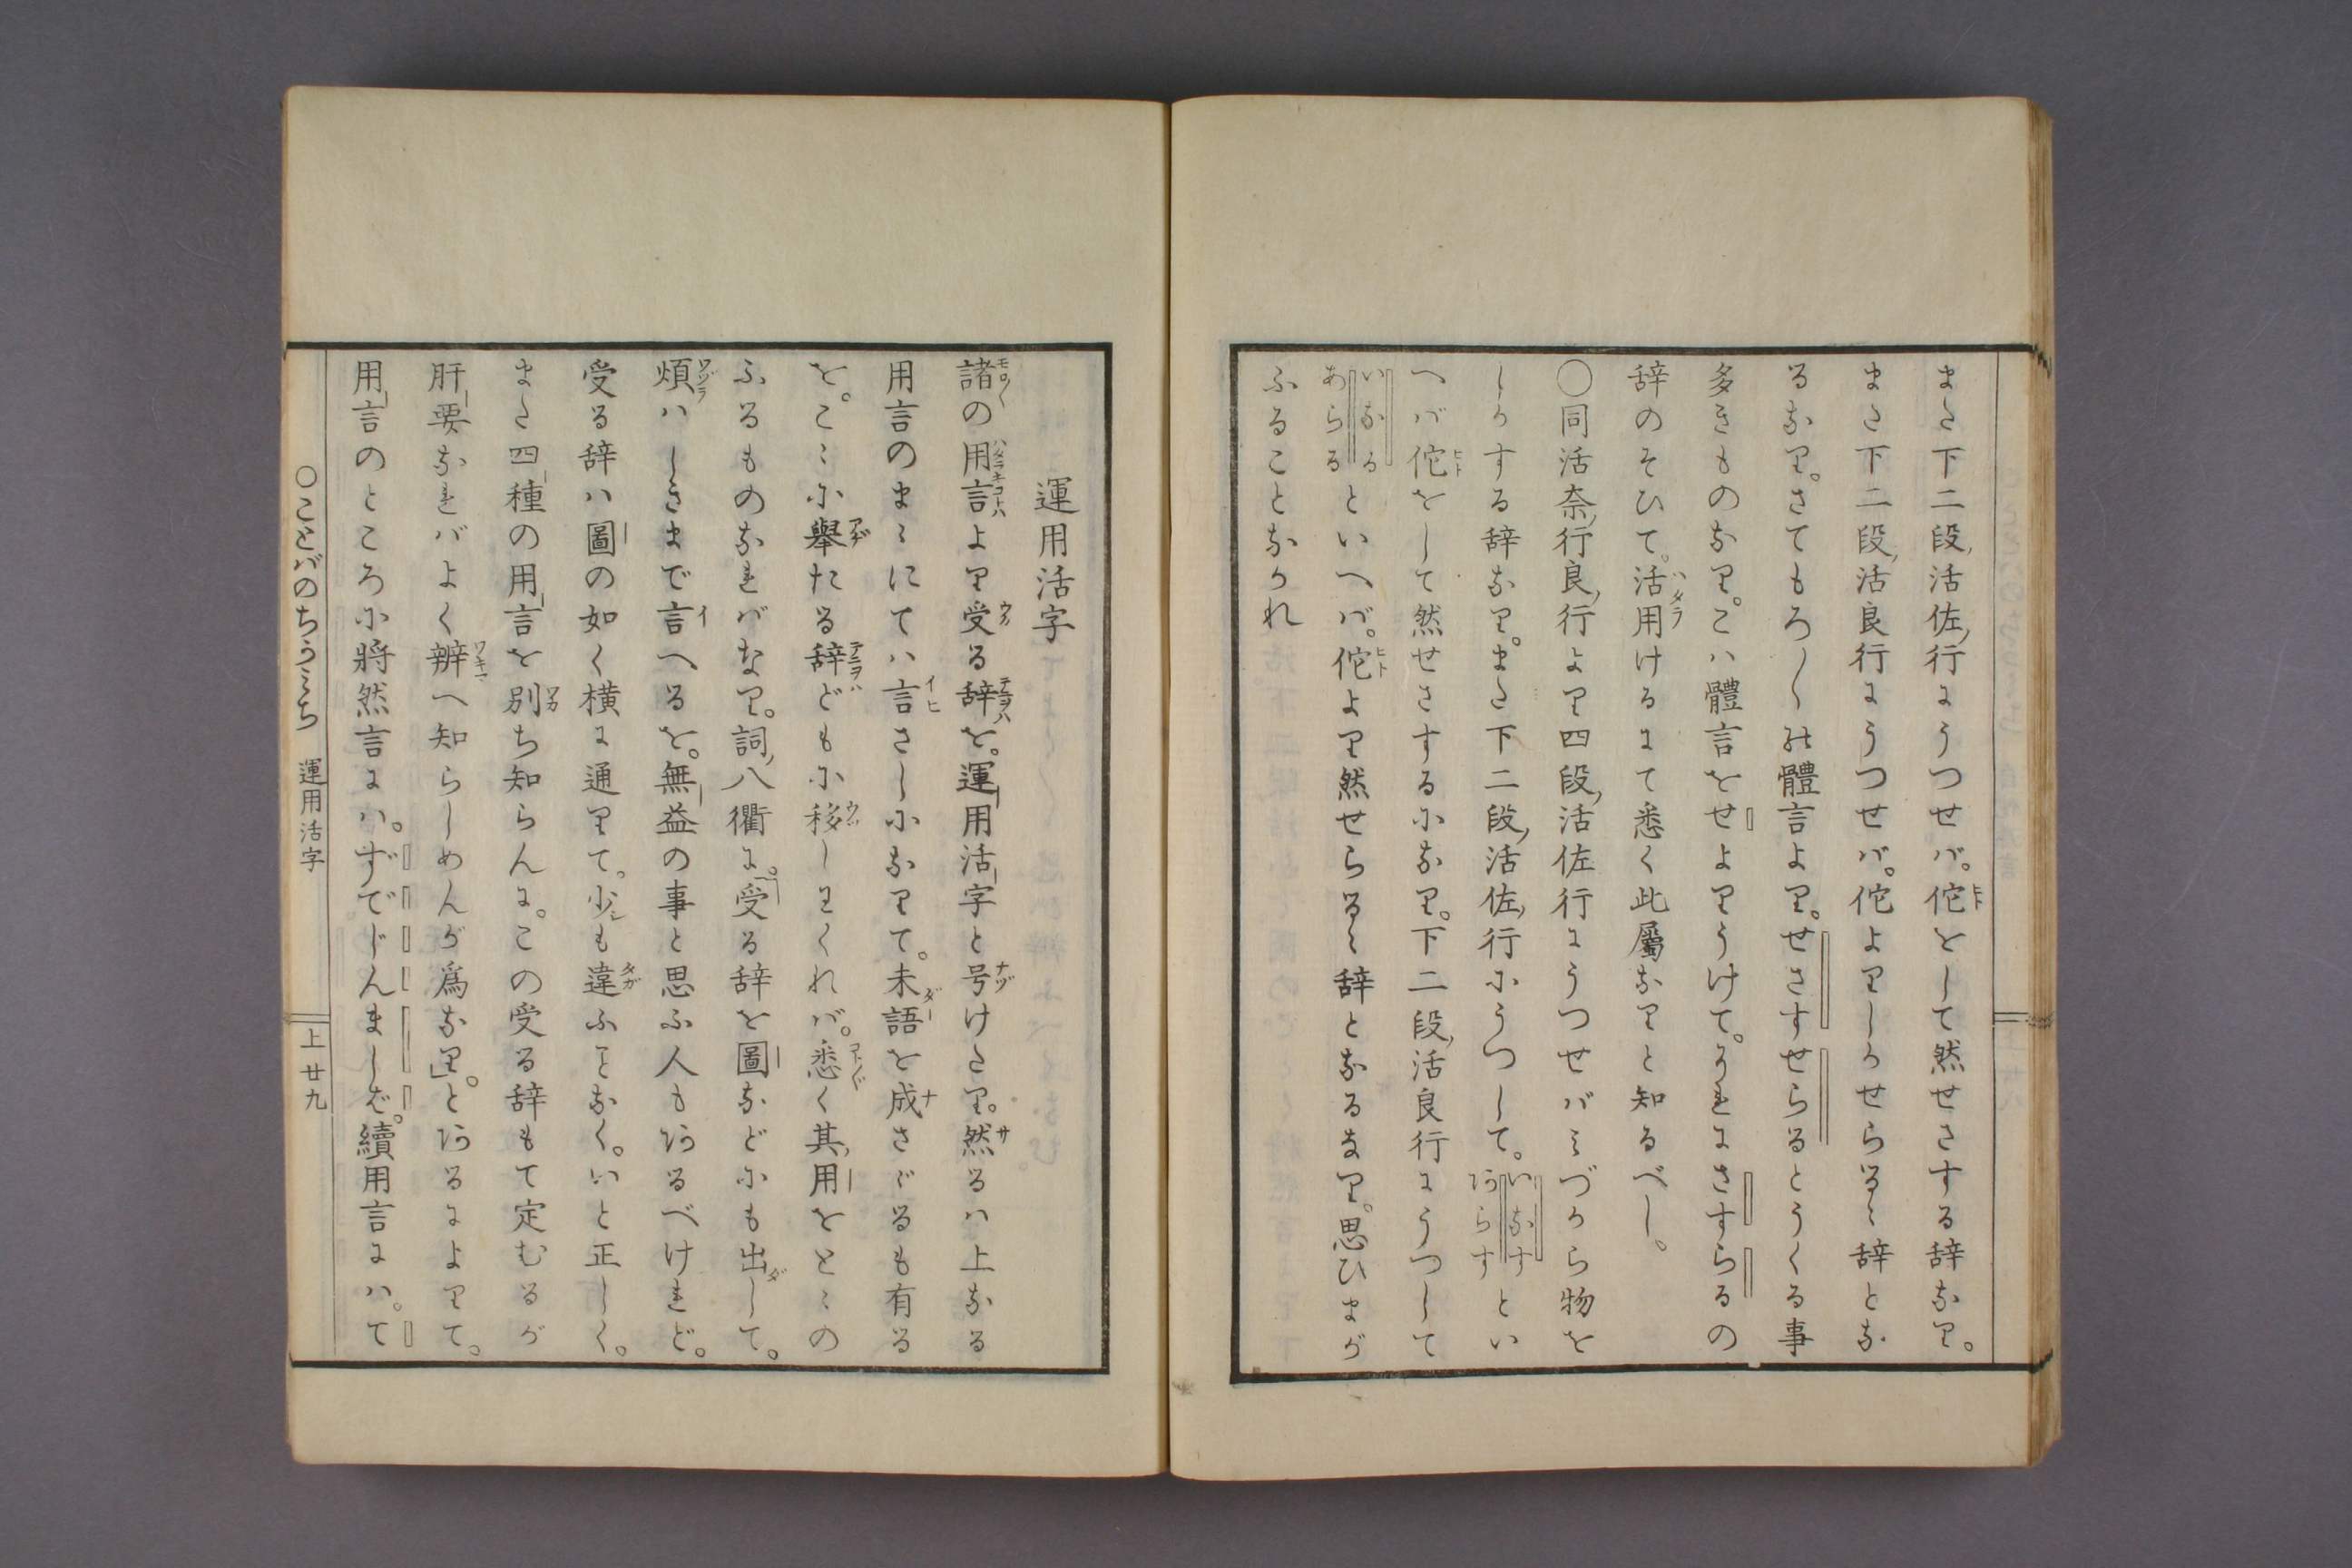 また下二段活佐行にうつせバ。佗をして然せさする辞なり。
また下二段活良行にうつせバ。佗よりしかせらるゝ辞とな
るなり。さてもろ〳〵の體言より。せさすせらるとうくる事
多きものなり。こハ體言をせよりうけて。それにさすらるの
辞のそひて。活用けるにて悉く此屬なりと知るべし。
〇同活奈行良行より四段活佐行にうつせバみづから物を
しかする辞なり。また下二段活佐行にうつして。いなす あらすとい
へバ佗をして然せさするになり。下二段活良行にうつして
いなる あらるといへバ。佗より然せらるゝ辞となるなり。思ひまが
ふることなかれ
運用活字
諸の用言より受る辞を。運用活字と号けたり。然るハ上なる
用言のまゝにてハ言さしになりて。未語を成さゞるも有る
を。こゝに舉たる辞どもに移しわくれバ。悉く其用をとゝの
ふるものなれバなり。詞八衢に。「受る辞を圖などにも出して。
煩ハしきまで言へるを。無益の事と思ふ人もあるべけれど。
受る辞ハ圖の如く横に通りて。少も違ふことなく。いと正しく。
また四種の用言を別ち知らんに。この受る辞もて定むるが
肝要なれバよく辨へ知らしめんが爲なり」。とあるによりて。
用言のところに將然言にハ。ずでじんましば。續用言にハ。て
〇ことバのちかみち 運用活字 上 廿九